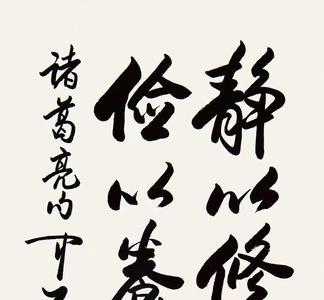 静以修
俭以养
诸葛亮句